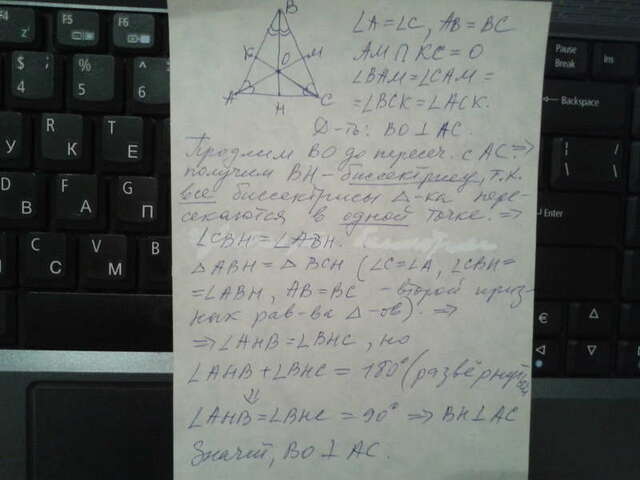 B
К O M
A H C
∠A=∠C, AB=BC
AM∩KC=O
∠BAM=∠CAM=
=∠BCK=∠ACK.
Д-ть: BO⊥AC.
Продлим BO до пересеч. с AC.⇒
получим BH-биссектрису, т.к.
все биссектрисы Δ-ка пере-
секаются в одной точке.⇒
∠CBH=∠ABH.
ΔABH=ΔBCH (∠C=∠A, ∠CBH=
=∠ABH, AB=BC - второй приз-
нак рав-ва Δ-ов).⇒
⇒∠AHB=∠BHC, но
∠AHB+∠BHC=180°(развёрнутый
⇓
∠AHB=∠BHC=90°⇒BH⊥AC
Значит, BO⊥AC.
F4
F5
F6
Pause
Break
Ins
$
4
%
5
Backspace
К
R
Е
T
\
Enter
А
F
П
М
И
€